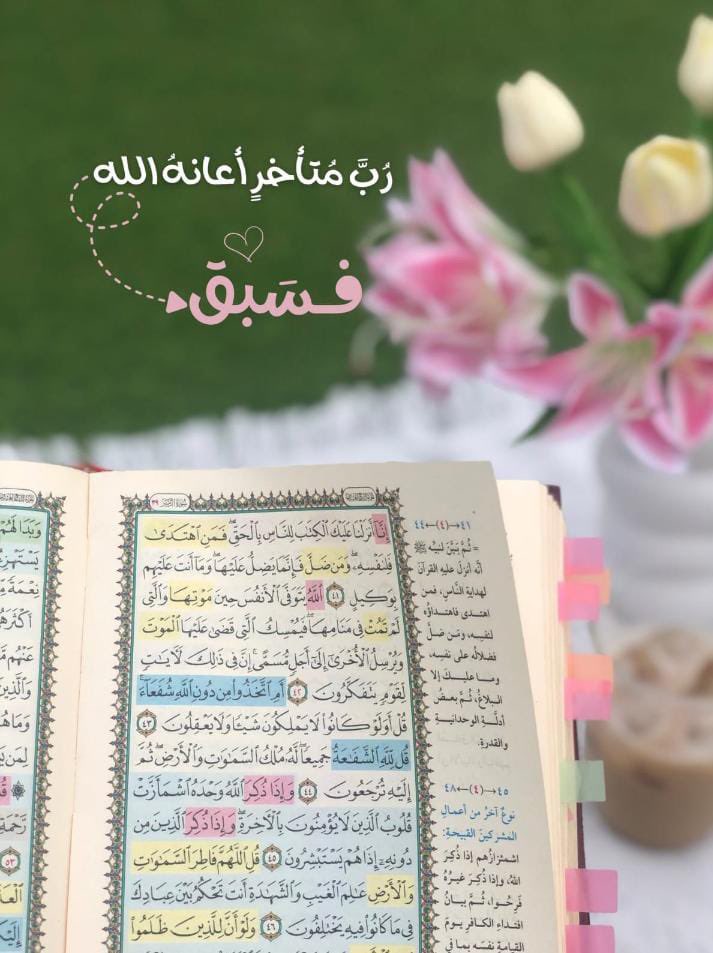 رُبَّ مُتأخرٍ أعانهُ الله
فسَبق
سورة الزمر ٣٩
إِنَّآ أَنزَلْنَا عَلَيْكَ ٱلْكِتَٰبَ لِلنَّاسِ بِٱلْحَقِّ ۖ فَمَنِ ٱهْتَدَىٰ
فَلِنَفْسِهِۦ ۖ وَمَن ضَلَّ فَإِنَّمَا يَضِلُّ عَلَيْهَا ۖ وَمَآ أَنتَ عَلَيْهِم
بِوَكِيلٍ ٤١ ٱللَّهُ يَتَوَفَّى ٱلْأَنفُسَ حِينَ مَوْتِهَا وَٱلَّتِى
لَمْ تَمُتْ فِى مَنَامِهَا ۖ فَيُمْسِكُ ٱلَّتِى قَضَىٰ عَلَيْهَا ٱلْمَوْتَ
وَيُرْسِلُ ٱلْأُخْرَىٰٓ إِلَىٰٓ أَجَلٍ مُّسَمًّى ۚ إِنَّ فِى ذَٰلِكَ لَءَايَٰتٍ
لِّقَوْمٍ يَتَفَكَّرُونَ ٤٢ أَمِ ٱتَّخَذُوا۟ مِن دُونِ ٱللَّهِ شُفَعَآءَ ۚ
قُلْ أَوَلَوْ كَانُوا۟ لَا يَمْلِكُونَ شَيْـًٔا وَلَا يَعْقِلُونَ ٤٣
قُل لِّلَّهِ ٱلشَّفَٰعَةُ جَمِيعًا ۖ لَّهُۥ مُلْكُ ٱلسَّمَٰوَٰتِ وَٱلْأَرْضِ ۖ ثُمَّ
إِلَيْهِ تُرْجَعُونَ ٤٤ وَإِذَا ذُكِرَ ٱللَّهُ وَحْدَهُ ٱشْمَأَزَّتْ
قُلُوبُ ٱلَّذِينَ لَا يُؤْمِنُونَ بِٱلْءَاخِرَةِ ۖ وَإِذَا ذُكِرَ ٱلَّذِينَ مِن
دُونِهِۦٓ إِذَا هُمْ يَسْتَبْشِرُونَ ٤٥ قُلِ ٱللَّهُمَّ فَاطِرَ ٱلسَّمَٰوَٰتِ
وَٱلْأَرْضِ عَٰلِمَ ٱلْغَيْبِ وَٱلشَّهَٰدَةِ أَنتَ تَحْكُمُ بَيْنَ عِبَادِكَ
فِى مَا كَانُوا۟ فِيهِ يَخْتَلِفُونَ ٤٦ وَلَوْ أَنَّ لِلَّذِينَ ظَلَمُوا۟
٤١→(٤)←٤٤
= ثُمَّ بَيَّنَ لنبيِّه ﷺ
أنَّه أنزلَ عليه القرآنَ
لهدايةِ النَّاسِ، فمن
اهتدى فاهتداؤُه
لنفسِه، ومَن ضلَّ
فضلالُه على نفسِه،
وما عليكَ إلا
البلاغُ، ثُمَّ بعضُ
أدلَّةِ الوحدانيةِ
والقدرةِ.
٤٥→(٤)←٤٨
نوعٌ آخرُ من أعمالِ
المشركينَ القبيحةِ:
اشمئزازُهم إذا ذُكرَ
اللهُ، وإذا ذُكرَ غيرُه
فرحُوا، ثُمَّ بيانُ
افتداءِ الكافرِ يومَ
القيامةِ نفسَه بما في